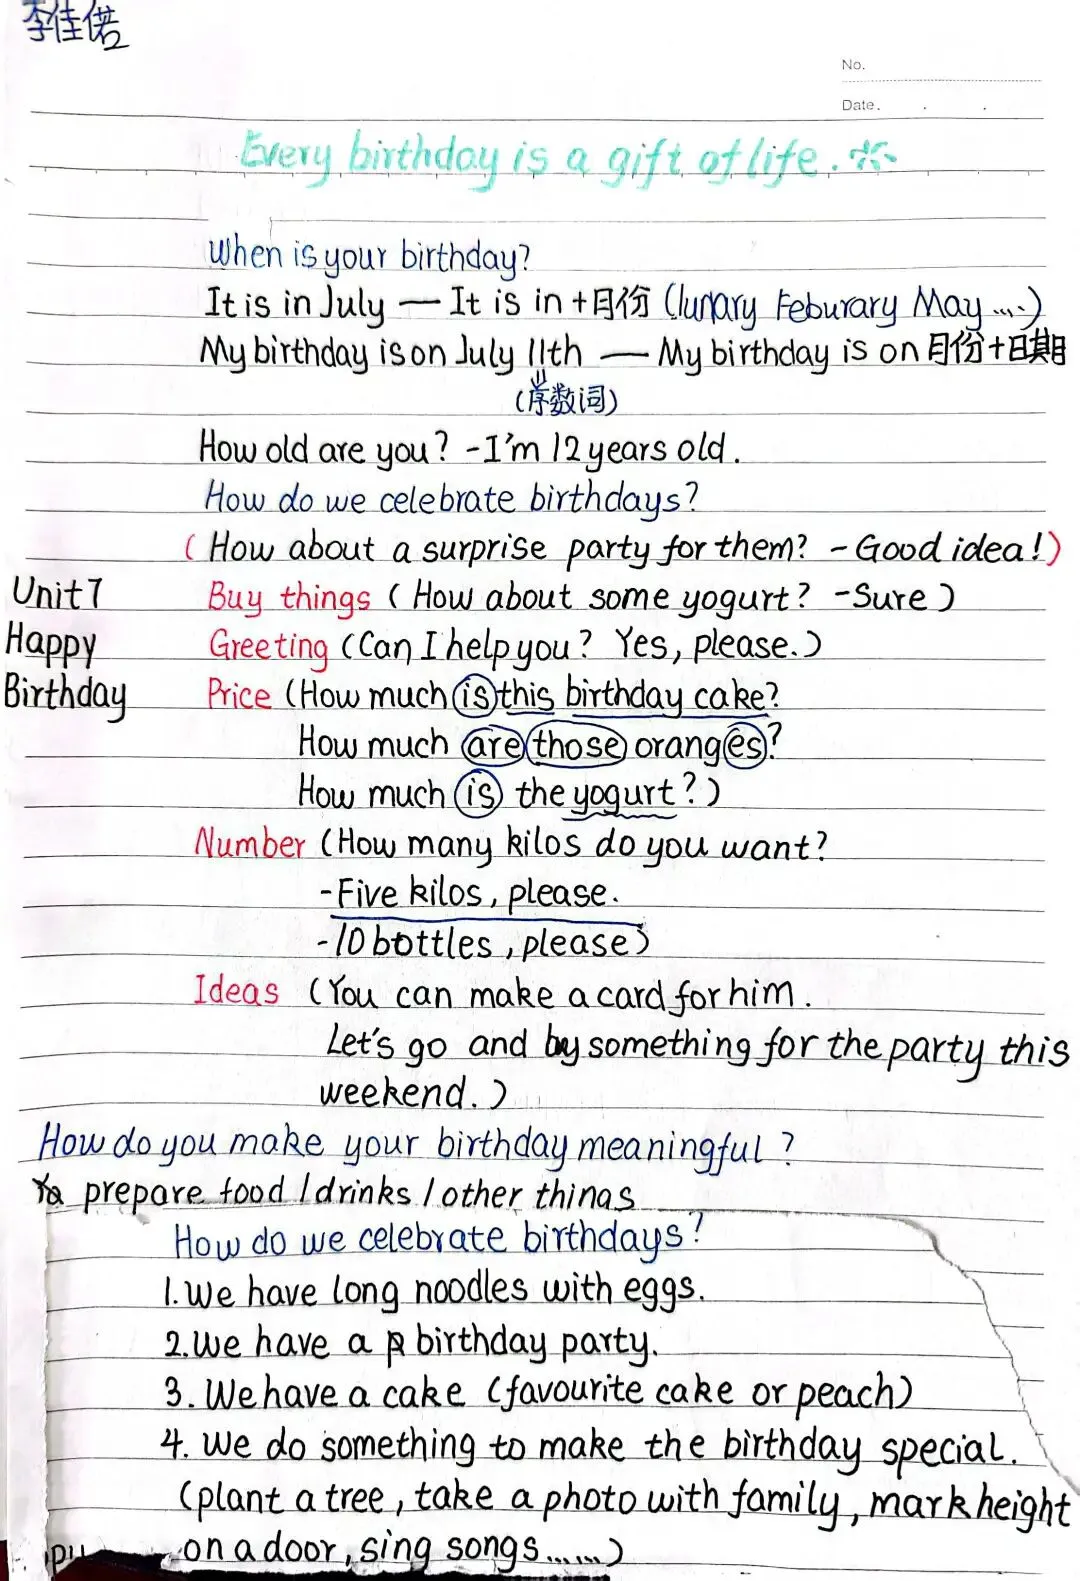 李佳偌
No.
Date.
Every birthday is a gift of life.
When is your birthday?
It is in July — It is in +月份 (Junary Feburary May ...)
My birthday is on July 11th — My birthday is on 月份+日期
(序数词)
How old are you? -I'm 12 years old.
How do we celebrate birthdays?
( How about a surprise party for them? - Good idea!)
Unit7 Buy things ( How about some yogurt? -Sure )
Happy Greeting (Can I help you? Yes, please.)
Birthday Price (How much is this birthday cake?
How much are those oranges?
How much is the yogurt?)
Number (How many kilos do you want?
-Five kilos, please.
-10 bottles, please)
Ideas (You can make a card for him.
Let's go and by something for the party this
weekend.)
How do you make your birthday meaningful?
prepare food / drinks / other things
How do we celebrate birthdays?
1. We have long noodles with eggs.
2. We have a birthday party.
3. We have a cake (favourite cake or peach)
4. We do something to make the birthday special.
(plant a tree, take a photo with family, mark height
on a door, sing songs......)